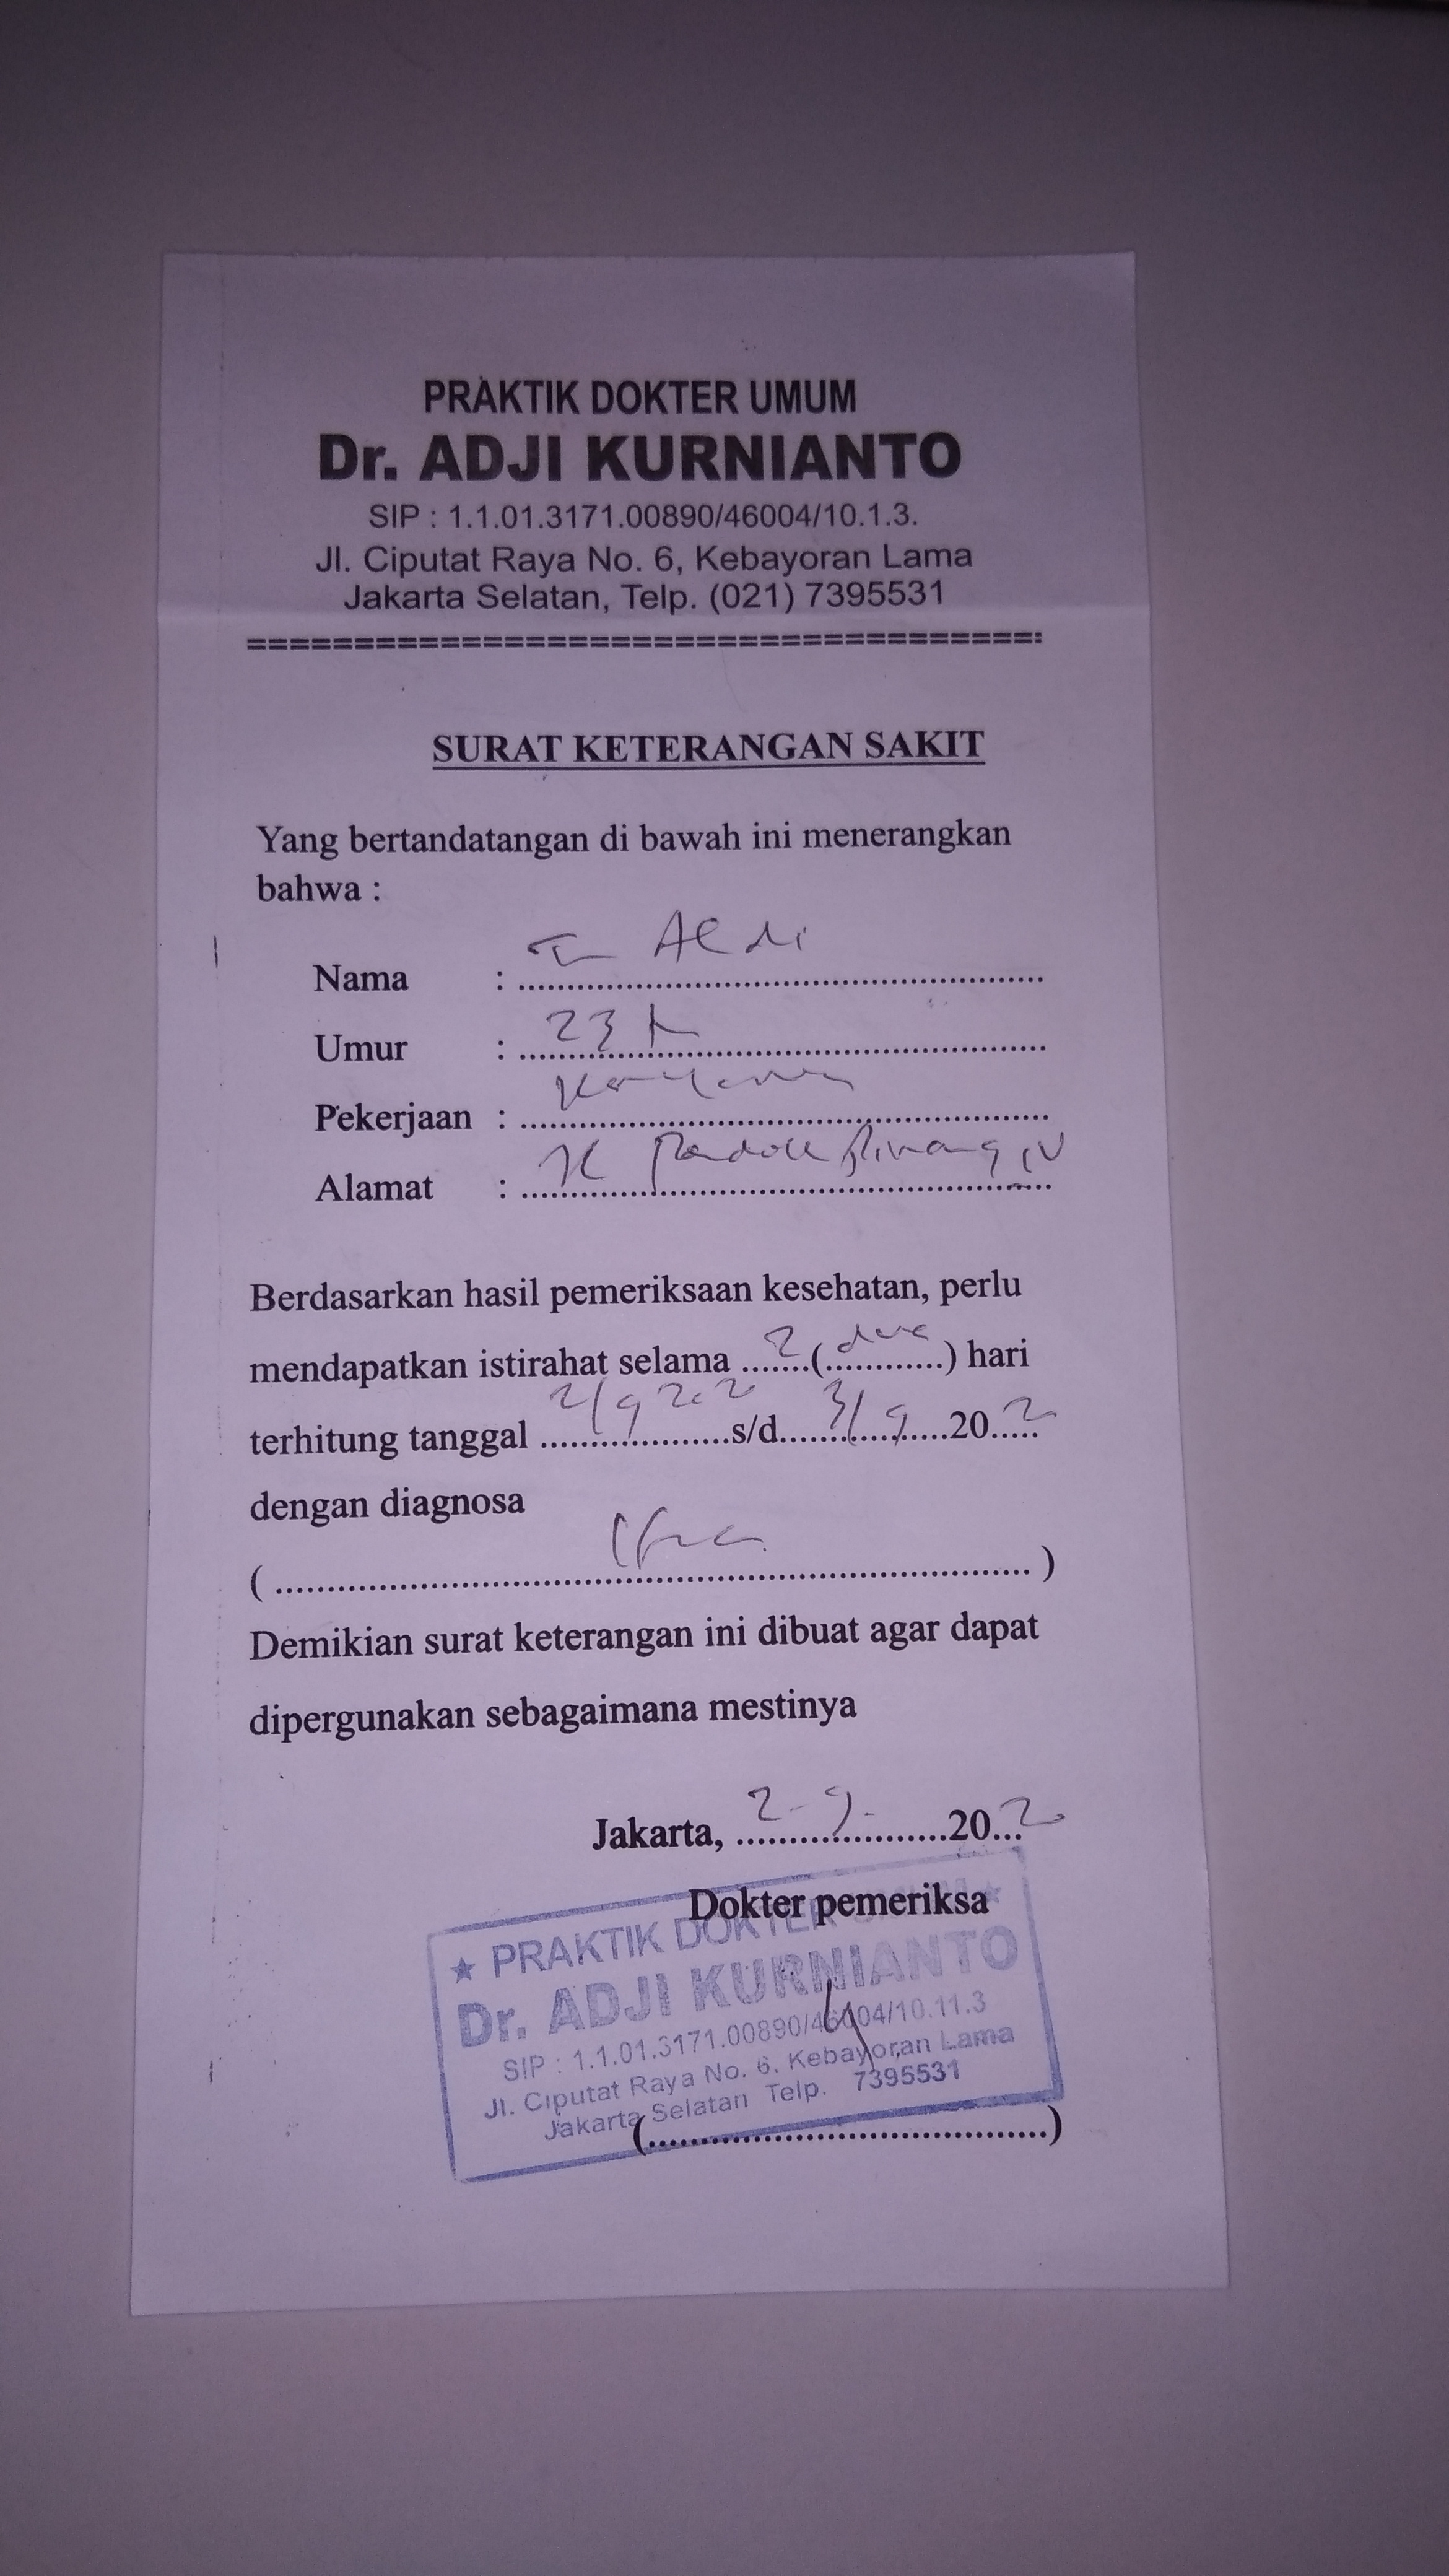 PRAKTIK DOKTER UMUM
Dr. ADJI KURNIANTO
SIP : 1.1.01.3171.00890/46004/10.1.3.
Jl. Ciputat Raya No. 6, Kebayoran Lama
Jakarta Selatan, Telp. (021) 7395531
=====================================
SURAT KETERANGAN SAKIT
Yang bertandatangan di bawah ini menerangkan
bahwa :
Nama : Tn Aldi
Umur : 23 th
Pekerjaan : Karyawan
Alamat : Jl Pondok Pinang IV
Berdasarkan hasil pemeriksaan kesehatan, perlu
mendapatkan istirahat selama 2 (dua) hari
terhitung tanggal 2/9 2020 s/d 3/9 20 2
dengan diagnosa
( )
Demikian surat keterangan ini dibuat agar dapat
dipergunakan sebagaimana mestinya
Jakarta, 2-9- 20 2
Dokter pemeriksa
★ PRAKTIK DOKTER UMUM ★
Dr. ADJI KURNIANTO
SIP : 1.1.01.3171.00890/46004/10.11.3
Jl. Ciputat Raya No. 6. Kebayoran Lama
Jakarta Selatan Telp. 7395531
(....................................)